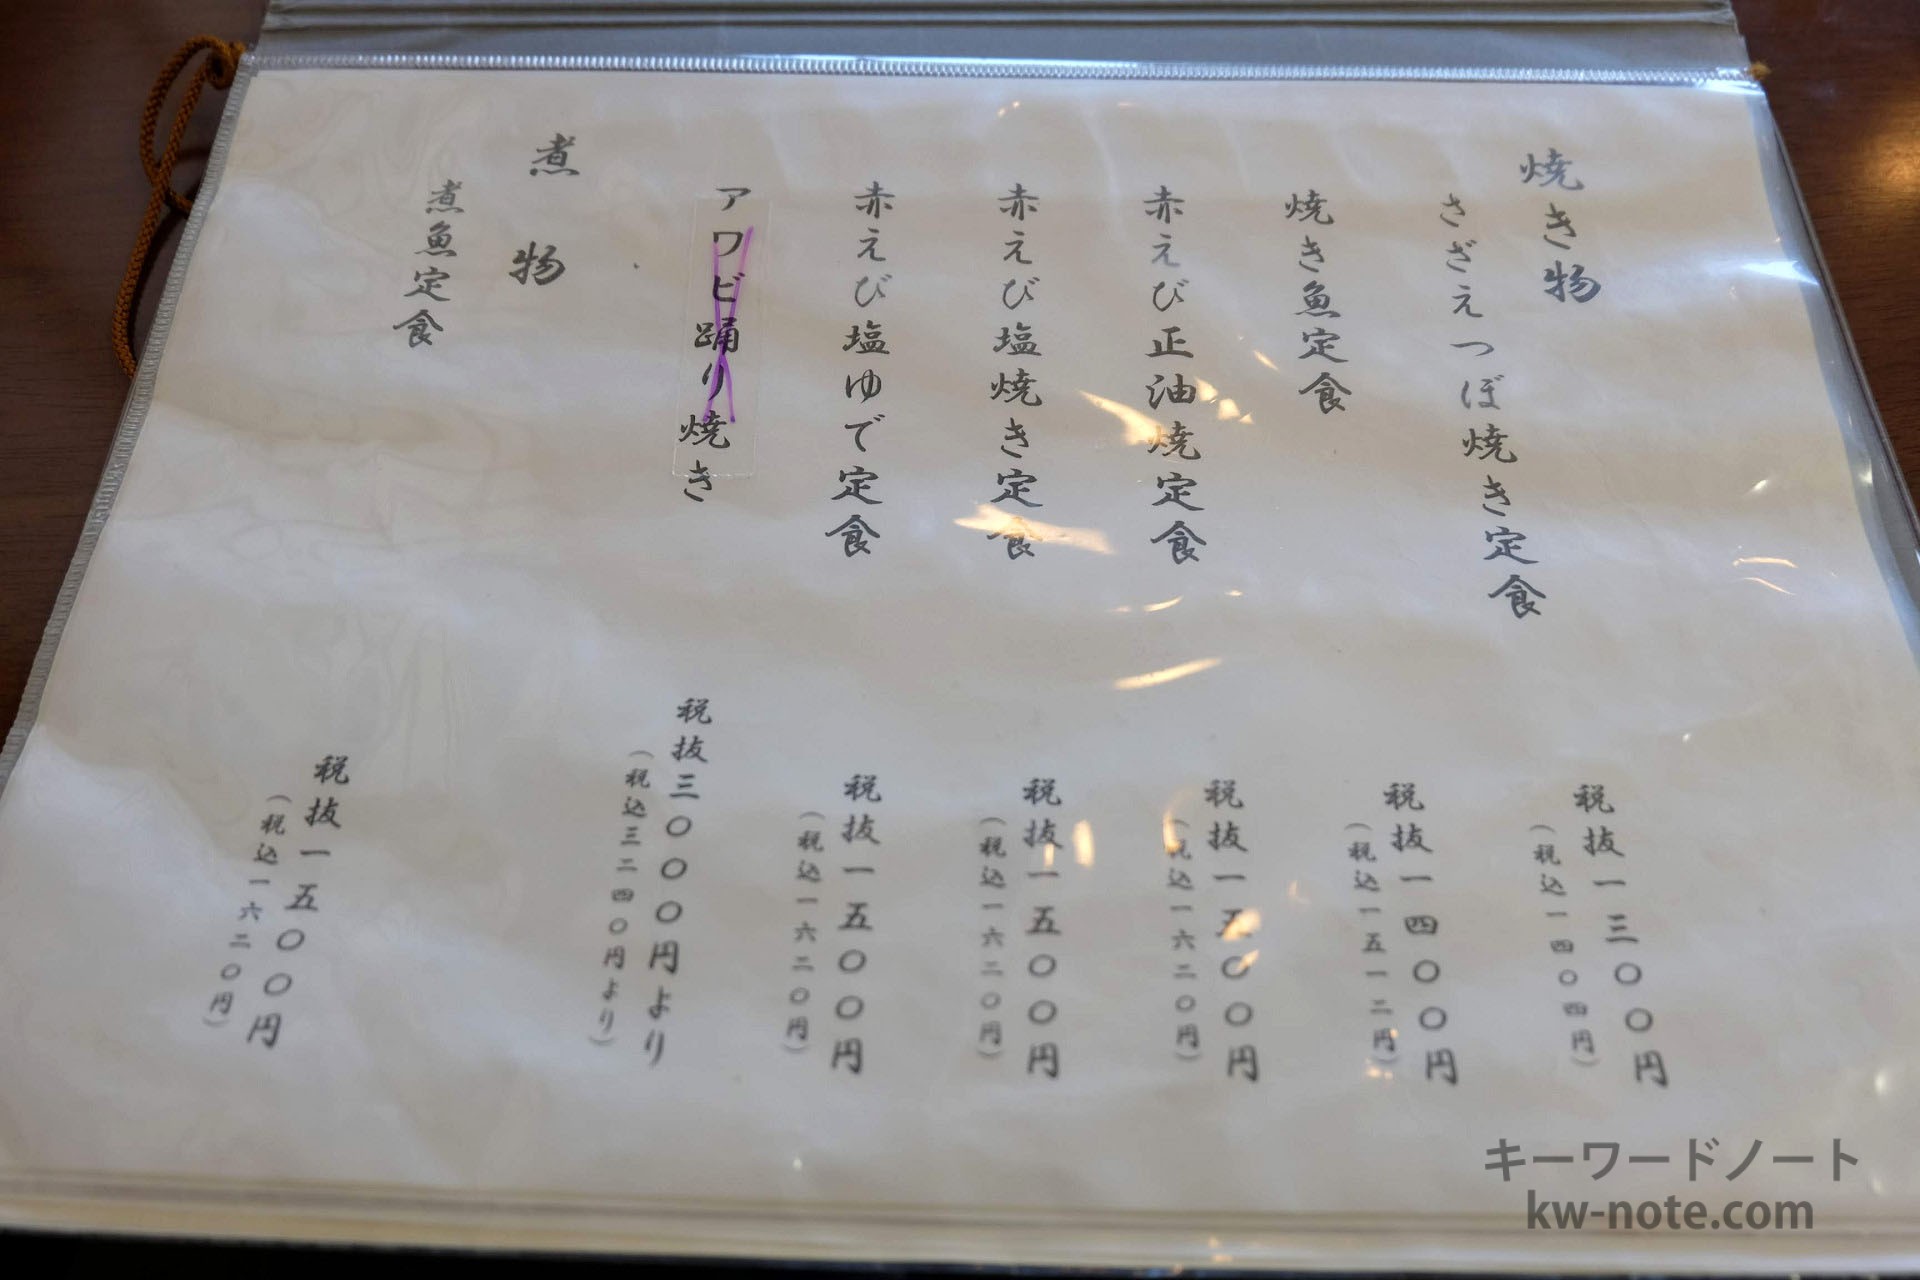 焼き物
さざえつぼ焼き定食
税抜一三〇〇円
（税込一四〇四円）
焼き魚定食
税抜一四〇〇円
（税込一五一二円）
赤えび正油焼定食
税抜一五〇〇円
（税込一六二〇円）
赤えび塩焼き定食
税抜一五〇〇円
（税込一六二〇円）
赤えび塩ゆで定食
税抜一五〇〇円
（税込一六二〇円）
アワビ踊り焼き
税抜三〇〇〇円より
（税込三二四〇円より）
煮物
煮魚定食
税抜一五〇〇円
（税込一六二〇円）
キーワードノート
kw-note.com